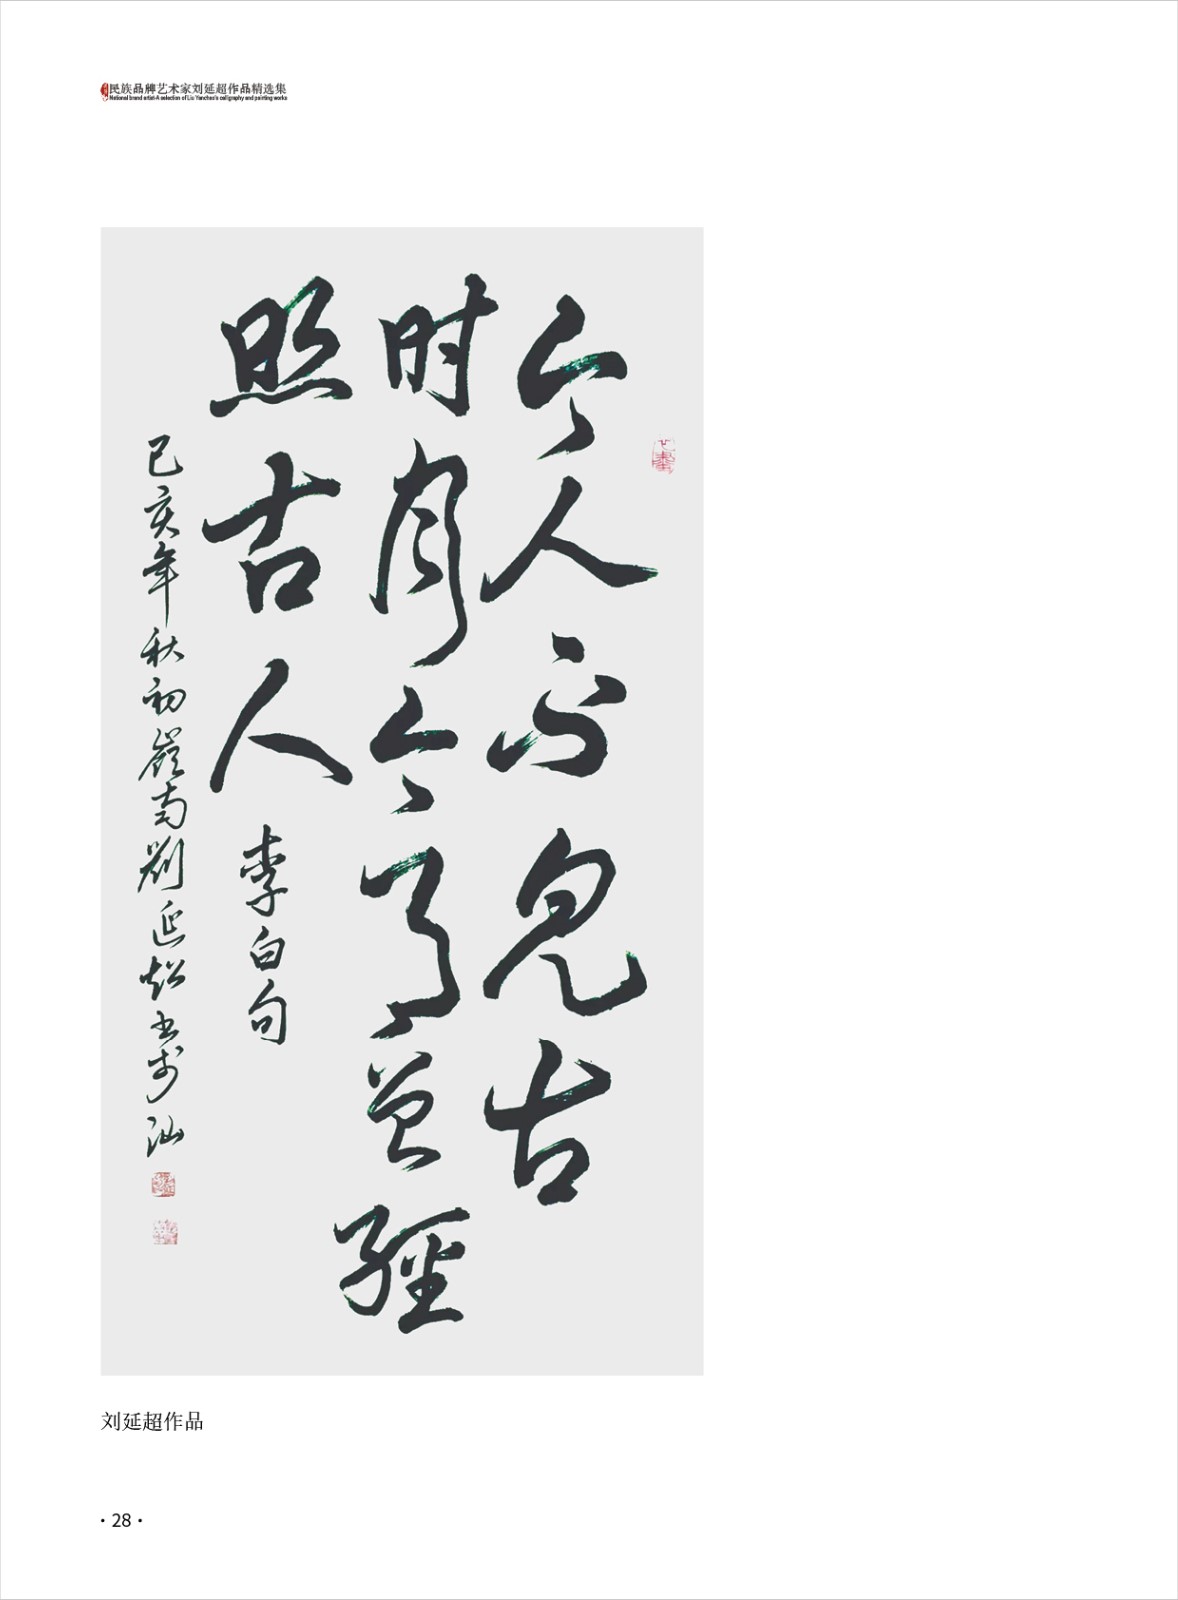 民族品牌艺术家刘延超作品精选集
National brand artist-A selection of Liu Yanchao's calligraphy and painting works
今人不見古
时月今月曾經
照古人 李白句
己亥年秋初嶺南劉延超书於汕
刘延超作品
·28·